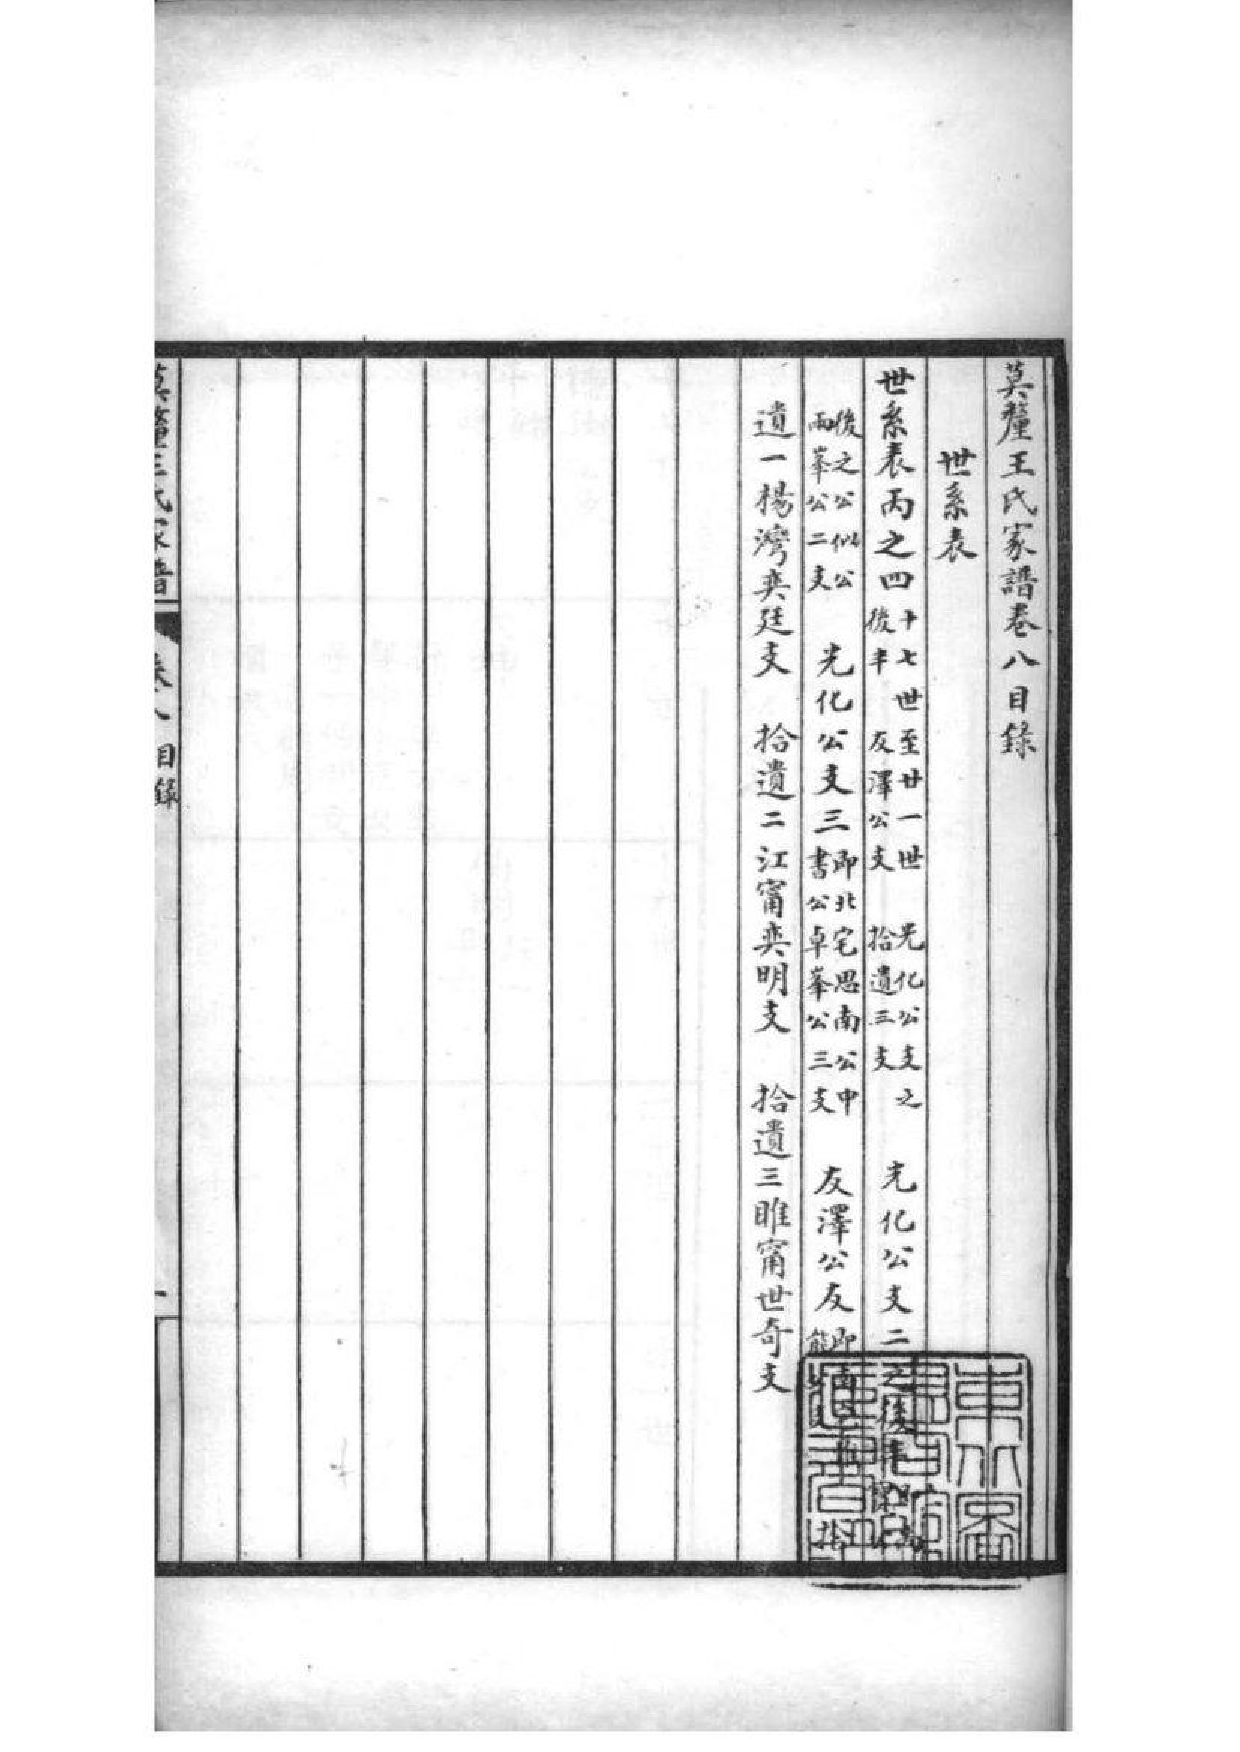 莫釐王氏家譜卷八目錄
世系表
世系表丙之四 十七世至廿一世 光化公支之後半 友澤公支 拾遺三支 光化公支二之後半
後之公似公兩峯公二支 光化公支三 即北宅思南公中書公卓峯公三支 友澤公友 即南 拾
遺一楊灣奕廷支 拾遺二江甯奕明支 拾遺三睢甯世奇支
莫釐王氏家譜 卷八 目錄 一